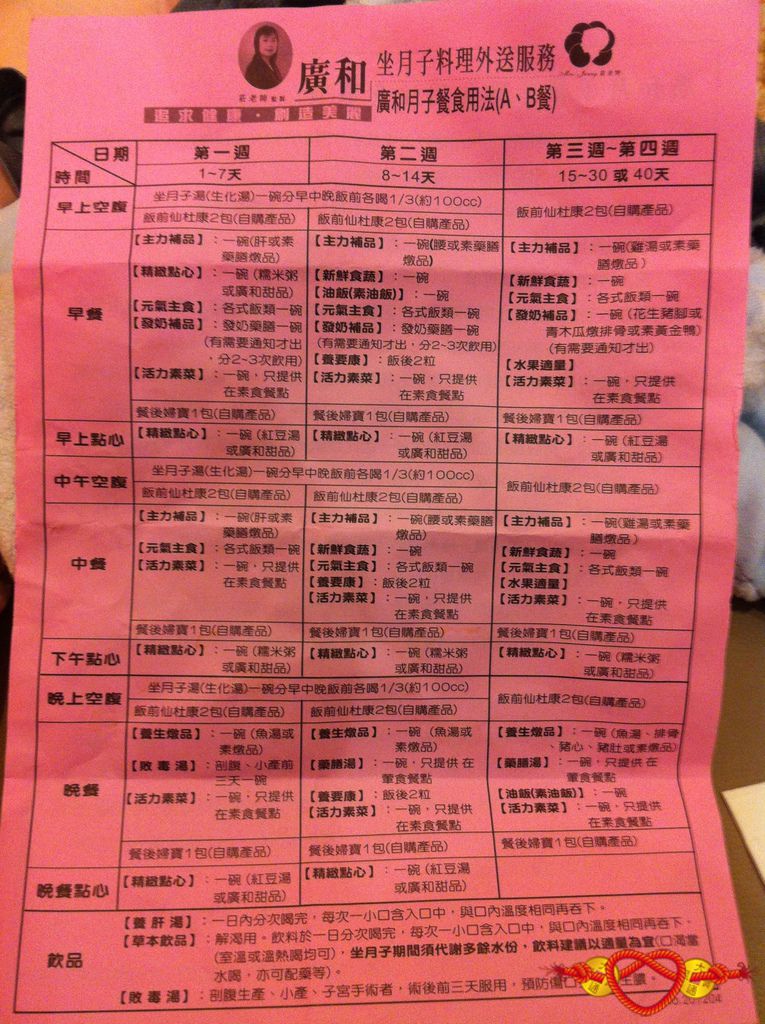 莊老師 監製
廣和 坐月子料理外送服務
追求健康·創造美麗
廣和月子餐食用法(A、B餐)
日期
時間
第一週 第二週 第三週~第四週
1~7天 8~14天 15~30 或 40天
早上空腹
坐月子湯(生化湯)一碗分早中晚飯前各喝1/3(約100cc)
飯前仙杜康2包(自購產品) 飯前仙杜康2包(自購產品) 飯前仙杜康2包(自購產品)
早餐
【主力補品】:一碗(肝或素
藥膳燉品)
【精緻點心】:一碗(糯米粥
或廣和甜品)
【元氣主食】:各式飯類一碗
【發奶補品】:發奶藥膳一碗
(有需要通知才出
,分2~3次飲用)
【活力素菜】:一碗,只提供
在素食餐點
餐後婦寶1包(自購產品)
【主力補品】:一碗(腰或素藥膳
燉品)
【新鮮食蔬】:一碗
【油飯(素油飯)】:一碗
【元氣主食】:各式飯類一碗
【發奶補品】:發奶藥膳一碗
(有需要通知才出,分2~3次飲用)
【養要康】:飯後2粒
【活力素菜】:一碗,只提供
在素食餐點
餐後婦寶1包(自購產品)
【主力補品】:一碗(雞湯或素藥
膳燉品)
【新鮮食蔬】:一碗
【元氣主食】:各式飯類一碗
【發奶補品】:一碗(花生豬腳或
青木瓜燉排骨或素黃金鴨)
(有需要通知才出)
【水果適量】
【活力素菜】:一碗,只提供
在素食餐點
餐後婦寶1包(自購產品)
早上點心
【精緻點心】:一碗(紅豆湯
或廣和甜品)
【精緻點心】:一碗(紅豆湯
或廣和甜品)
【精緻點心】:一碗(紅豆湯
或廣和甜品)
中午空腹
坐月子湯(生化湯)一碗分早中晚飯前各喝1/3(約100cc)
飯前仙杜康2包(自購產品) 飯前仙杜康2包(自購產品) 飯前仙杜康2包(自購產品)
中餐
【主力補品】:一碗(肝或素
藥膳燉品)
【元氣主食】:各式飯類一碗
【活力素菜】:一碗,只提供
在素食餐點
餐後婦寶1包(自購產品)
【主力補品】:一碗(腰或素藥膳
燉品)
【新鮮食蔬】:一碗
【元氣主食】:各式飯類一碗
【養要康】:飯後2粒
【活力素菜】:一碗,只提供
在素食餐點
餐後婦寶1包(自購產品)
【主力補品】:一碗(雞湯或素藥
膳燉品)
【新鮮食蔬】:一碗
【元氣主食】:各式飯類一碗
【水果適量】
【活力素菜】:一碗,只提供
在素食餐點
餐後婦寶1包(自購產品)
下午點心
【精緻點心】:一碗(糯米粥
或廣和甜品)
【精緻點心】:一碗(糯米粥
或廣和甜品)
【精緻點心】:一碗(糯米粥
或廣和甜品)
晚上空腹
坐月子湯(生化湯)一碗分早中晚飯前各喝1/3(約100cc)
飯前仙杜康2包(自購產品) 飯前仙杜康2包(自購產品) 飯前仙杜康2包(自購產品)
晚餐
【養生燉品】:一碗(魚湯或
素燉品)
【敗毒湯】:剖腹、小產前
三天一碗
【活力素菜】:一碗,只提供
在素食餐點
餐後婦寶1包(自購產品)
【養生燉品】:一碗(魚湯或
素燉品)
【藥膳湯】:一碗,只提供在
葷食餐點
【養要康】:飯後2粒
【活力素菜】:一碗,只提供
在素食餐點
餐後婦寶1包(自購產品)
【養生燉品】:一碗(魚湯、排骨
、豬心、豬肚或素燉品)
【藥膳湯】:一碗,只提供在
葷食餐點
【油飯(素油飯)】:一碗
【活力素菜】:一碗,只提供
在素食餐點
餐後婦寶1包(自購產品)
晚餐點心
【精緻點心】:一碗(紅豆湯
或廣和甜品)
【精緻點心】:一碗(紅豆湯
或廣和甜品)
飲品
【養肝湯】:一日內分次喝完,每次一小口含入口中,與口內溫度相同再吞下。
【草本飲品】:解渴用。飲料於一日分次喝完,每次一小口含入口中,與口內溫度相同再吞下。
(室溫或溫熱喝均可),坐月子期間須代謝多餘水份,飲料建議以適量為宜(口渴當
水喝,亦可配藥等)。
【敗毒湯】:剖腹生產、小產、子宮手術者,術後前三天服用,預防傷口